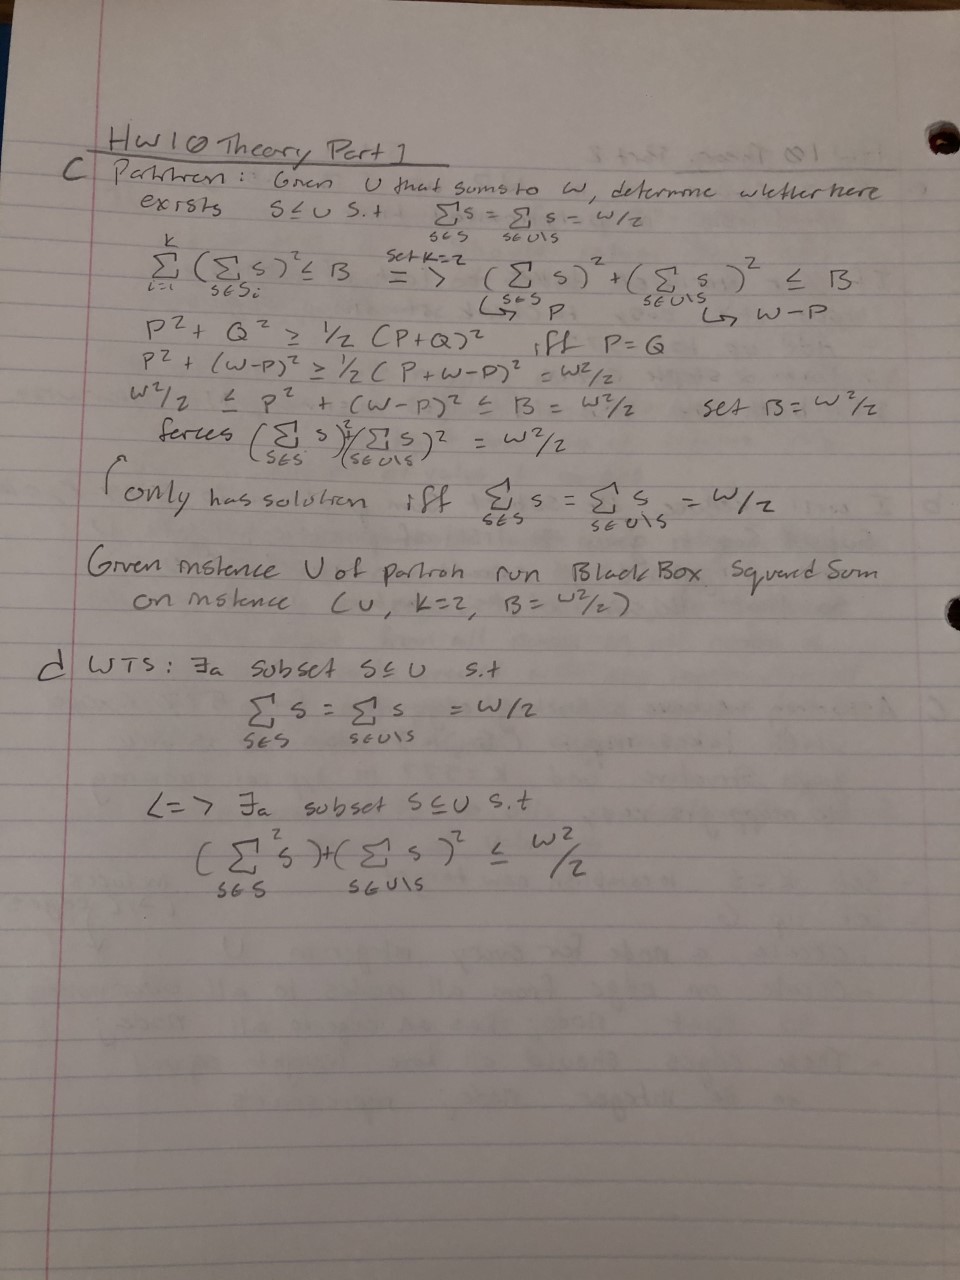 HW10 Theory Part 1
C Partition: Given U that sums to W, determine whether there
exists S ⊆ U s.t Σ_{s∈S} s = Σ_{s∈U\S} s = W/2
Σ_{i=1}^{k} (Σ_{s∈S_i} s)² ≤ B set k=2 => (Σ_{s∈S} s)² + (Σ_{s∈U\S} s)² ≤ B
↳ P ↳ W-P
P² + Q² ≥ 1/2 (P+Q)² iff P=Q
P² + (W-P)² ≥ 1/2 (P+W-P)² = W²/2
W²/2 ≤ P² + (W-P)² ≤ B = W²/2 set B = W²/2
forces (Σ_{s∈S} s)² + (Σ_{s∈U\S} s)² = W²/2
only has solution iff Σ_{s∈S} s = Σ_{s∈U\S} s = W/2
Given instance U of partition run Black Box Squared Sum
on instance (U, k=2, B= W²/2)
d WTS: ∃a subset S⊆U s.t
Σ_{s∈S} s = Σ_{s∈U\S} s = W/2
<=> ∃a subset S⊆U s.t
(Σ_{s∈S} s)² + (Σ_{s∈U\S} s)² ≤ W²/2